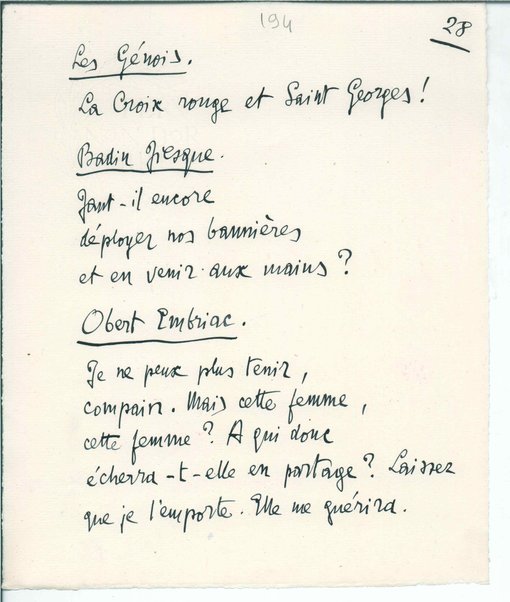 194
28
Les Génois.
La Croix rouge et Saint Georges !
Badin Fiesque.
Faut-il encore
déployer nos bannières
et en venir aux mains ?
Obert Embriac.
Je ne peux plus tenir,
compain. Mais cette femme,
cette femme ? A qui donc
écherra-t-elle en partage ? Laissez
que je l'emporte. Elle me guérira.